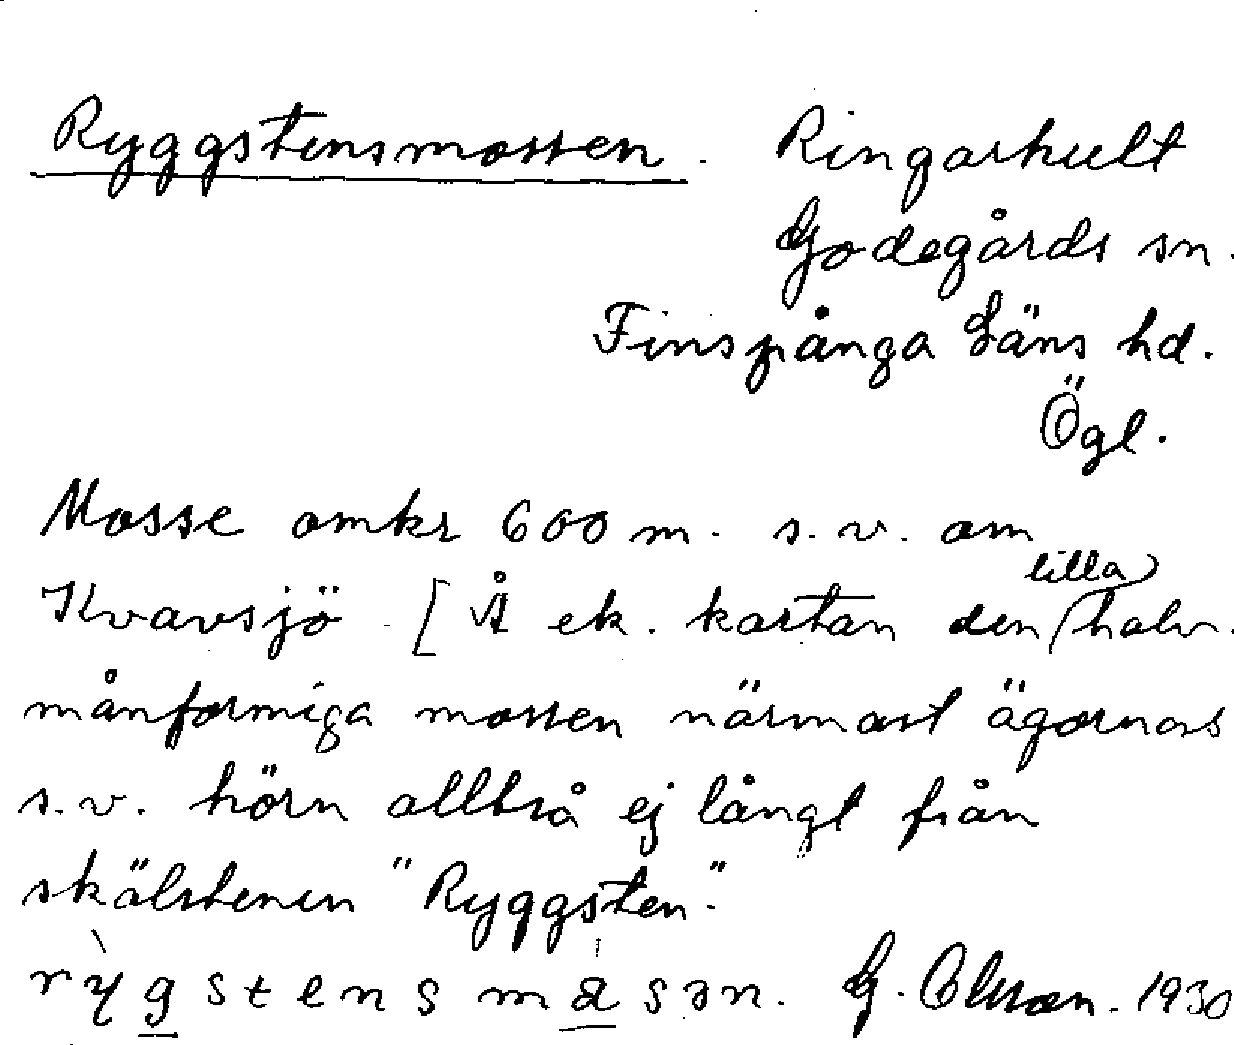 Ryggstensmossen. Ringarhult
Godegårds sn.
Finspånga Läns hd.
Ögl.
Mosse omkr 600 m. s.v. om
Kvavsjö. [Å ek. kartan den lilla halv-
månformiga mossen närmast ägornas
s.v. hörn alltså ej långt från
skälstenen "Ryggsten".
rỳgstensmåsən. G. Olsson. 1930